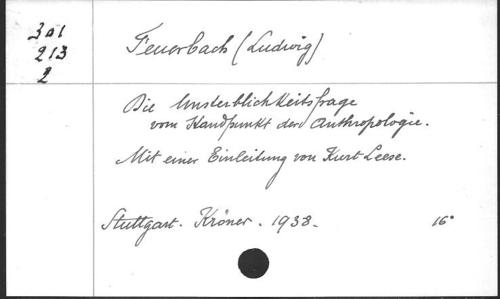 301
213
2
Feuerbach (Ludwig)
Die Unsterblichkeitsfrage
vom Standpunkt der Anthropologie.
Mit einer Einleitung von Kurt Leese.
Stuttgart. Kröner. 1938. 16°